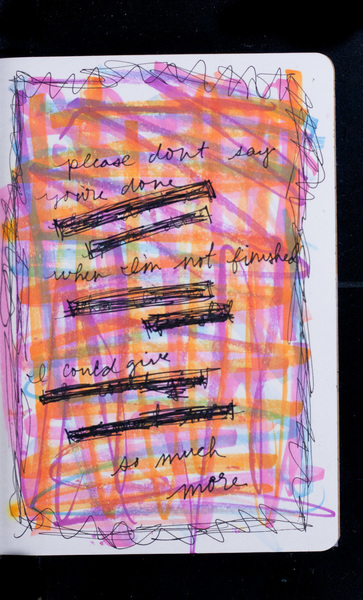 please dont say
you're done
when I'm not finished
I could give
so much
more